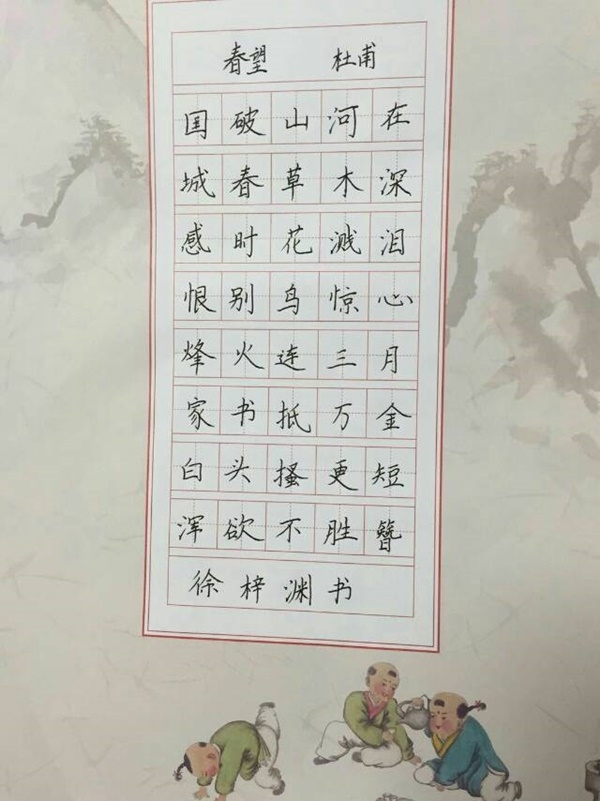 春望 杜甫
国破山河在
城春草木深
感时花溅泪
恨别鸟惊心
烽火连三月
家书抵万金
白头搔更短
浑欲不胜簪
徐梓渊书